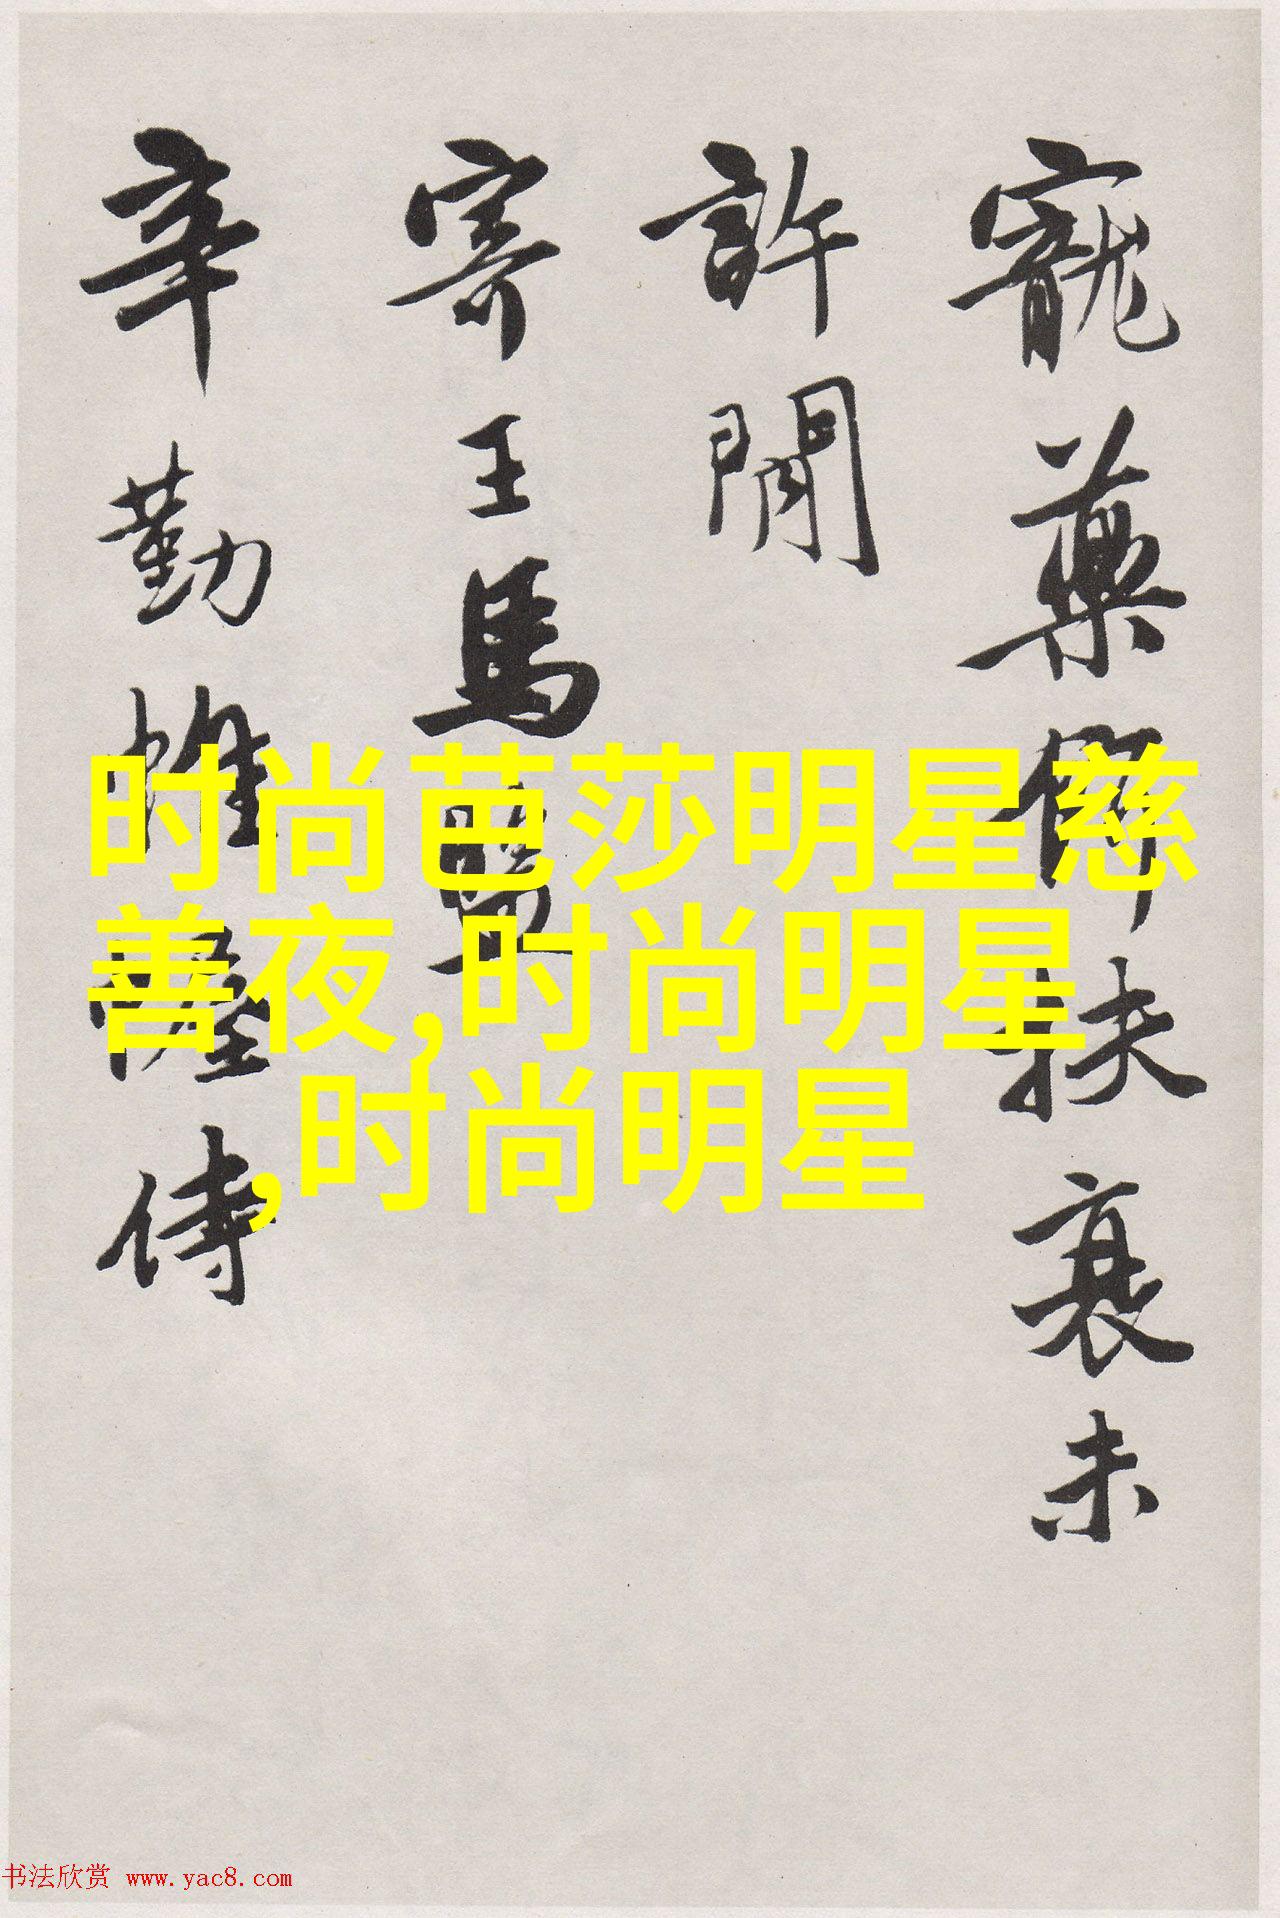 寵藥餌扶衰未
許閒
寄王馬
辛勤帷幄侍
时尚芭莎明星慈
善夜,时尚明星
,时尚明星
书法欣赏 www.yac8.com